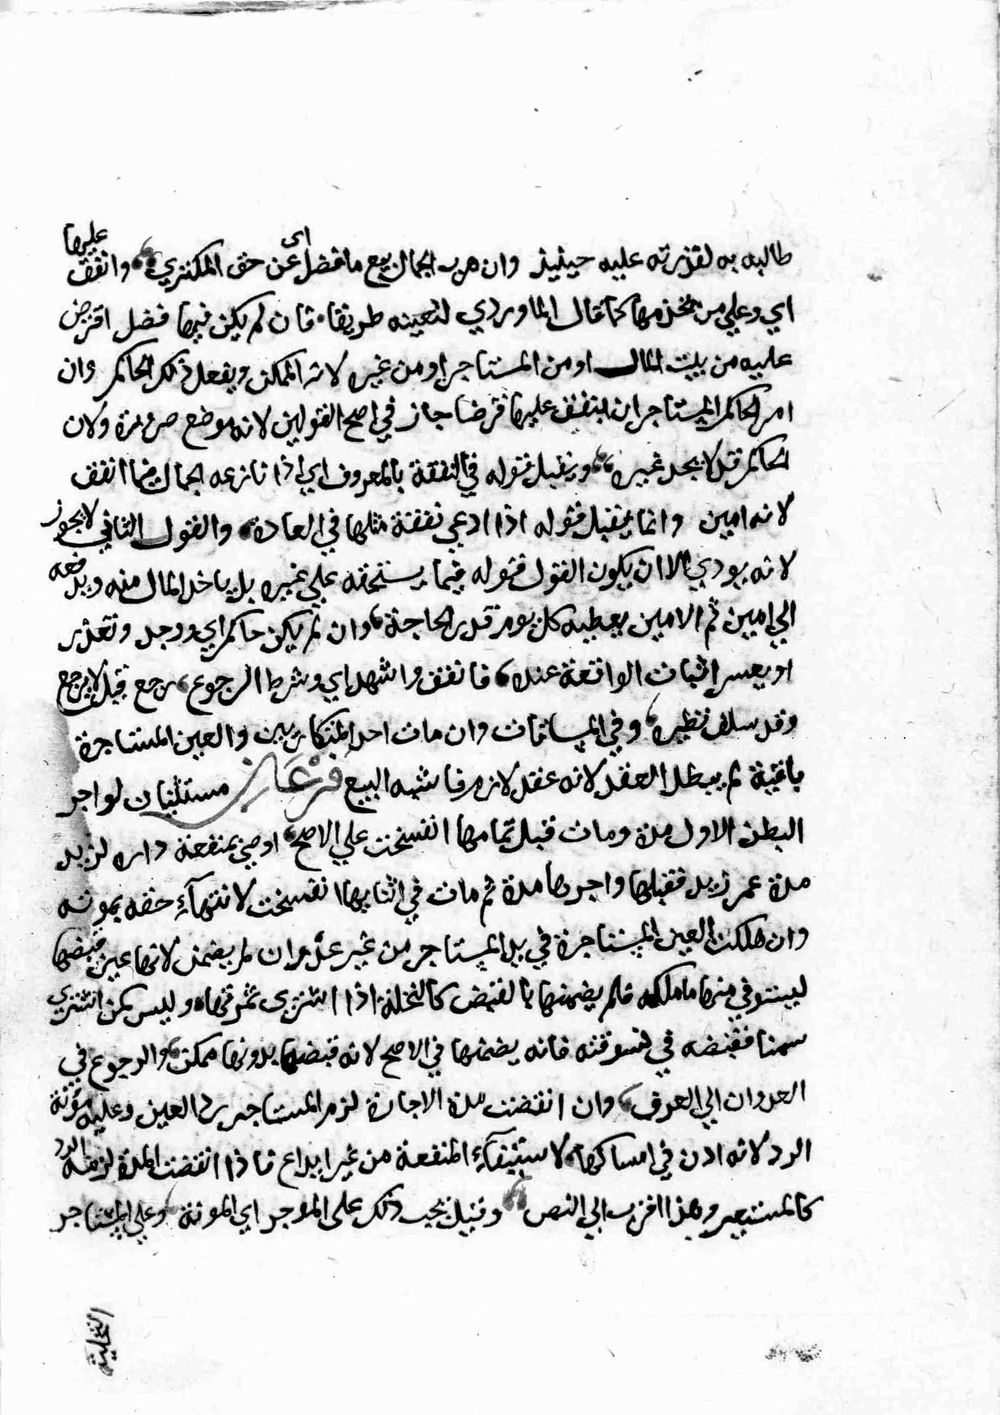 طالبه به لقدرته عليه حينيذ وان هرب الجمال بيع ما فضل اى عن حق المكتري وانفق عليها
اي وعلي من يخدمها كما قال الماوردي لتعينه طريقا فان لم يكن فيها فضل اقترض
عليه من بيت المال او من المستاجر او من غيره لانه الممكن ويفعل ذلك الحاكم وان
امر الحاكم المستاجر ان ينفق عليها قرضا جاز في اصح القولين لانه موضع ضرورة ولان
الحاكم قد لا يجد غيره ويقبل قوله في النفقة بالمعروف اي اذا نازعه الجمال فيما انفق
لانه امين وانما يقبل قوله اذا ادعي نفقة مثلها في العادة والقول الثاني لا يجوز
لانه يودي الا ان يكون القول قوله فيما يستحقه علي غيره بل ياخذ المال منه ويدفعه
الي امين ثم الامين يعطيه كل يوم قدر الحاجة وان لم يكن حاكم اي ووجد وتعذر
او يعسر اثبات الواقعة عنده فانفق واشهد اي وشرط الرجوع رجع وقيل لا يرجع
وقد سلف نظيره وفي المساقات وان مات احد المتكاريين والعين المستاجرة
باقية لم يبطل العقد لانه عقد لازم فاشبه البيع فرعان مستثنيان لو اجر
البطن الاول مدة ومات قبل تمامها انفسخت علي الاصح اوصي بمنفعة داره لزيد
مدة عمر زيد فقبلها واجرها مدة ثم مات في اثنايها انفسخت لانتهآء حقه بموته
وان هلكت العين المستاجرة في يد المستاجر من غير عدوان لم يضمن لانها عين قبضها
ليستوفي منها ما ملكه فلم يضمنها بالقبض كالنخلة اذا اشترى ثمرتها وليس كمن اشتري
سمنا فقبضه في بستوقته فانه يضمنها في الاصح لانه قبضها بدونها ممكن والرجوع في
العدوان الي العرف وان انقضت مدة الاجارة لزم المستاجر رد العين وعليه مؤنة
الرد لانه اذن في امساكها لاستيفآء المنفعة من غير ايداع فاذا انقضت المدة لزمه الرد
كالمستعير وهذا اقرب الي النص وقيل يجب ذلك على الموجر اي المونة وعلي المستاجر
التخلية